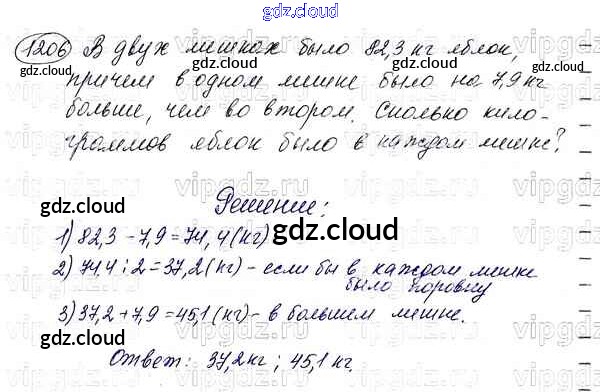 gdz.cloud
1206 В двух мешках было 82,3 кг яблок,
gdz.cloud gdz.cloud
причем в одном мешке было на 7,9 кг
больше, чем во втором. Сколько кило-
граммов яблок было в каждом мешке?
vipgdz.ru vipgdz.ru vipgdz.ru
gdz.cloud gdz.cloud
Решение:
1) 82,3 - 7,9 = 74,4 (кг)
gdz.cloud
2) 74,4 : 2 = 37,2 (кг) - если бы в каждом мешке
было поровну
3) 37,2 + 7,9 = 45,1 (кг) - в большем мешке.
Ответ: 37,2 кг ; 45,1 кг.
gdz.cloud gdz.cloud